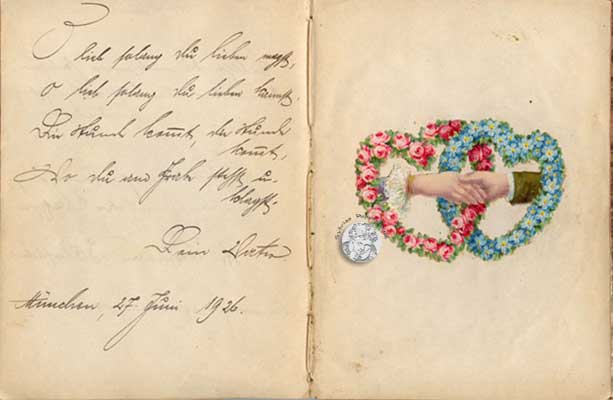 O lieb solang du lieben magst,
o lieb solang du lieben kannst.
Die Stunde kom̄t, die Stunde
kom̄t,
Wo du am Grab stehst u.
klagst.
Dein
München, 27. Juni 1926.